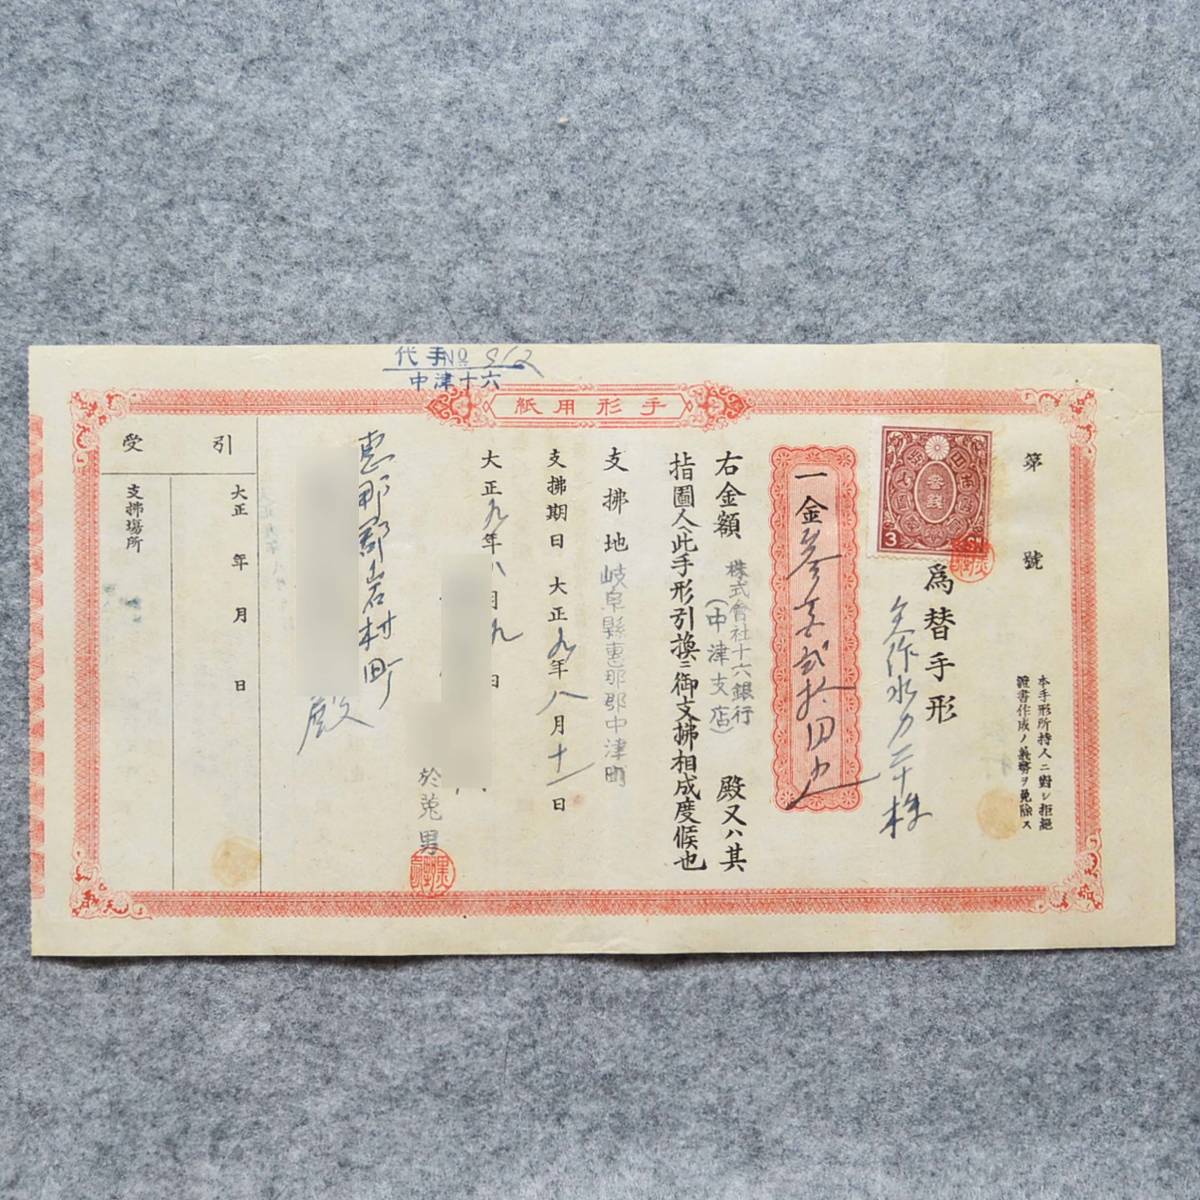 代手No 912
中津十六
手形用紙
第　號
本手形所持人ニ對シ拒絕
證書作成ノ義務ヲ免除ス
爲替手形
矢作水力二十株
3
一金参百貮拾円也
右金額
株式會社十六銀行
(中津支店)
殿又ハ其
指圖人ヘ此手形引換ニ御支拂相成度候也
支拂地 岐阜縣惠那郡中津町
支拂期日 大正九年八月十一日
大正九年八月九日
男
惠那郡岩村町
殿
引受
大正　年　月　日
支拂場所